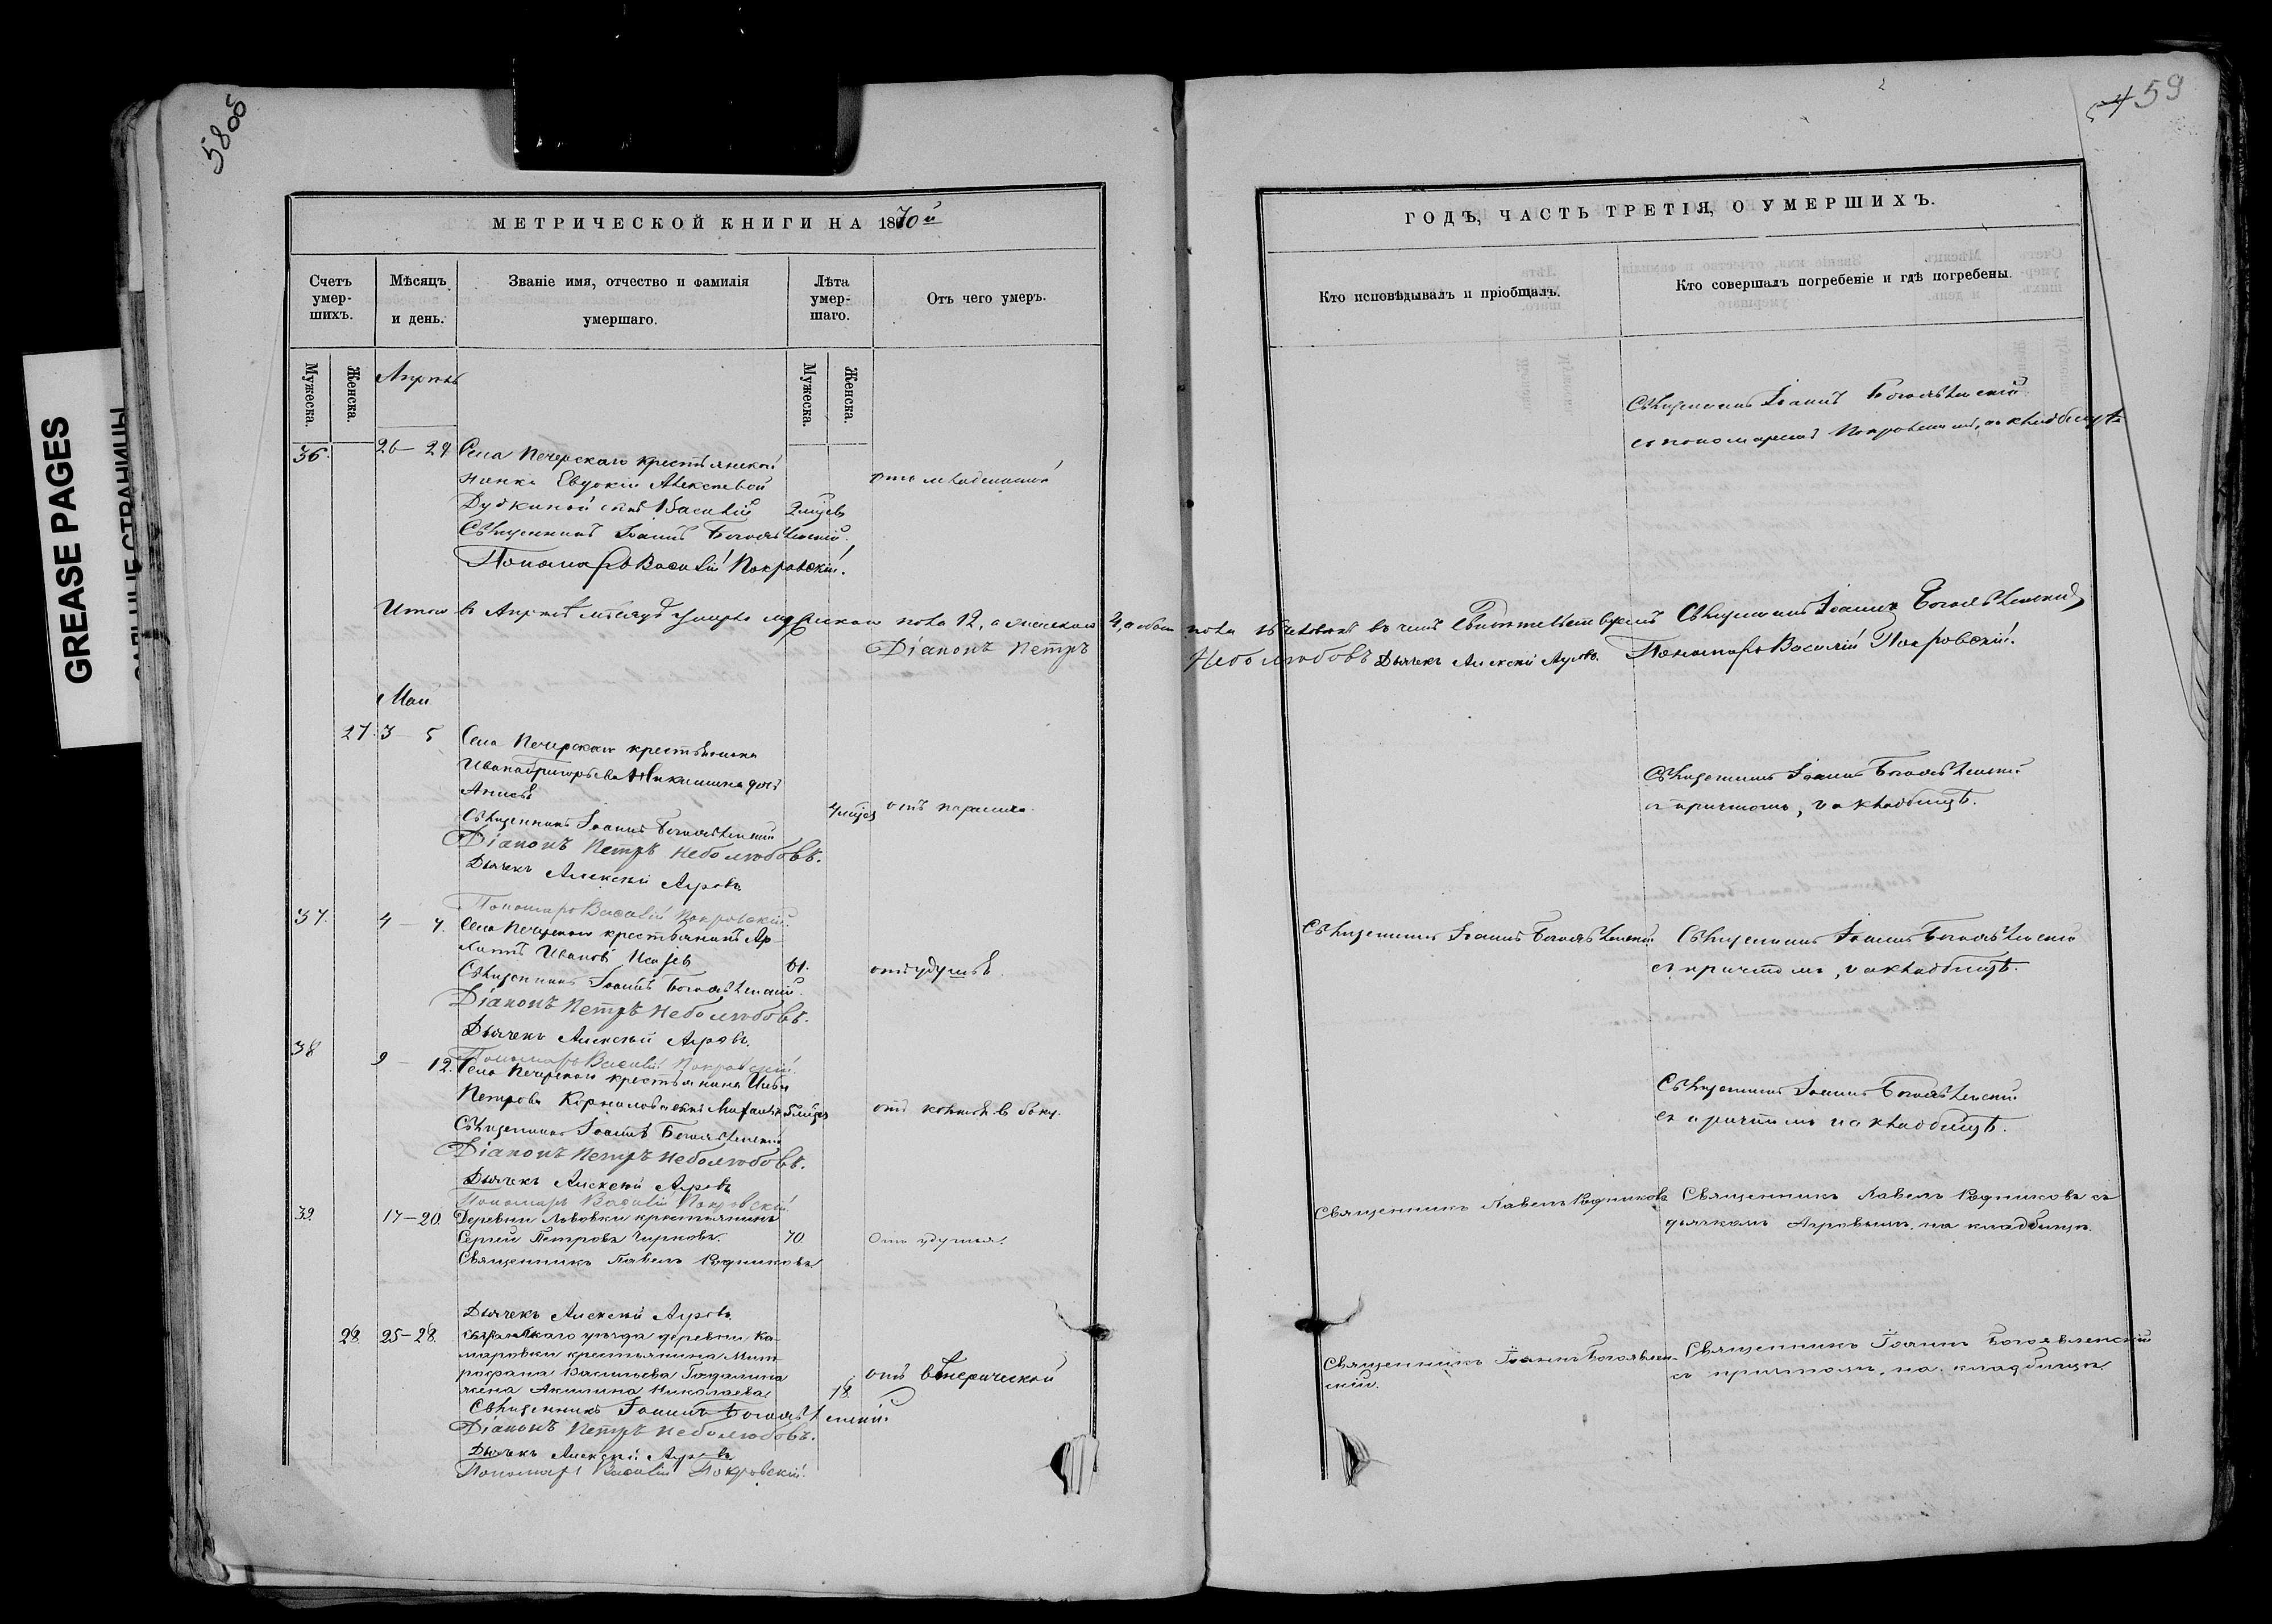 58об
59
GREASE PAGES
САЛЬНЫЕ СТРАНИЦЫ
МЕТРИЧЕСКОЙ КНИГИ НА 1870й
ГОДЪ, ЧАСТЬ ТРЕТІЯ, О УМЕРШИХЪ.
Счетъ умер-шихъ.
Мѣсяцъ и день.
Званіе имя, отчество и фамилія умершаго.
Лѣта умер-шаго.
Отъ чего умеръ.
Кто исповѣдывалъ и пріобщалъ.
Кто совершалъ погребеніе и гдѣ погребены.
Мужеска.
Женска.
Мужеска.
Женска.
Апрѣль
36. 26 — 29 Села Печерскаго крестьянской
Евдокіи Алексѣевой
Дудкиной сынъ Василій 2 мѣсяц
Священникъ Іоаннъ Богоявленскій.
Пономарь Василій Покровскій.
Священникъ Іоаннъ Богоявленскій
съ пономаремъ Покровскимъ, на кладбищѣ
Итого в Апрѣлѣ мѣсяцѣ умерло мужескаго пола 12, а женскаго 4, а обоего пола 16 человѣкъ въ чемъ свидѣтельствуемъ Священникъ Іоаннъ Богоявленскій,
Діаконъ Петръ Неболюбовъ Дьячекъ Алексѣй Агровъ. Пономарь Василій Покровскій.
Май
27. 3 — 5 Села Печерскаго крестьянина
Ивана Григорьева дочь
Священникъ Іоаннъ Богоявленскій
Діаконъ Петръ Неболюбовъ.
Дьячекъ Алексѣй Агровъ
Пономарь Василій Покровскій.
4 мѣсяц
отъ
Священникъ Іоаннъ Богоявленскій
съ причтомъ, на кладбищѣ.
37. 4 — 7. Села Печерскаго крестьянинъ
Ивановъ
61.
отъ удушья.
Священникъ Іоаннъ Богоявленскій.
Діаконъ Петръ Неболюбовъ.
Дьячекъ Алексѣй Агровъ.
Пономарь Василій Покровскій.
Священникъ Іоаннъ Богоявленскій
Священникъ Іоаннъ Богоявленскій
съ причтомъ, на кладбищѣ.
38 9 — 12. Села Печерскаго крестьянина Ильи
Петрова Корнилова сынъ
отъ в боку.
Священникъ Іоаннъ Богоявленскій
Діаконъ Петръ Неболюбовъ.
Дьячекъ Алексѣй Агровъ
Пономарь Василій Покровскій.
Священникъ Іоаннъ Богоявленскій
съ причтомъ на кладбищѣ.
39. 17—20. Деревни Львовки крестьянинъ
Сергѣй Петровъ Чирковъ. 70 Отъ удушья.
Священникъ Павелъ Родниковъ
Дьячекъ Алексѣй Агровъ.
Священникъ Павелъ Родниковъ
Священникъ Павелъ Родниковъ съ
дьячкомъ Агровымъ, на кладбищѣ.
28. 25—28. Сызранскаго уѣзда деревни Ка-
маровки крестьянина Мит-
рофана Васильева
жена Акилина Николаева 18. отъ венерической
Священникъ Іоаннъ Богоявленскій.
Діаконъ Петръ Неболюбовъ.
Дьячекъ Алексѣй Агровъ
Пономарь Василій Покровскій.
Священникъ Іоаннъ Богоявлен-
скій.
Священникъ Іоаннъ Богоявленскій
съ причтомъ, на кладбищѣ.